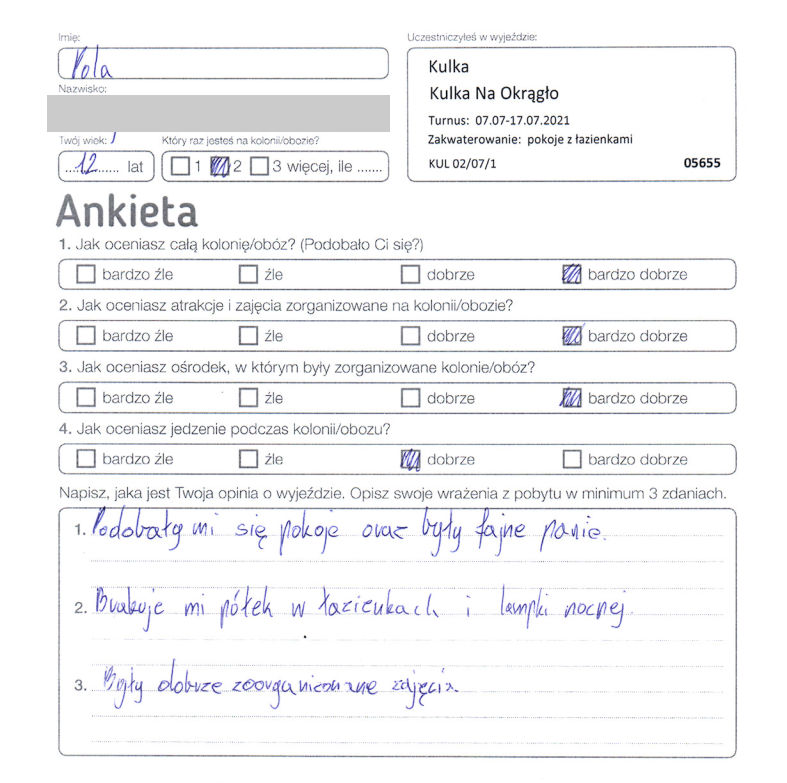 Imię:
Pola
Nazwisko:
Twój wiek:
12 lat
Który raz jesteś na kolonii/obozie?
1 2 3 więcej, ile .......
Uczestniczyłeś w wyjeździe:
Kulka
Kulka Na Okrągło
Turnus: 07.07-17.07.2021
Zakwaterowanie: pokoje z łazienkami
KUL 02/07/1 05655
Ankieta
1. Jak oceniasz całą kolonię/obóz? (Podobało Ci się?)
bardzo źle źle dobrze bardzo dobrze
2. Jak oceniasz atrakcje i zajęcia zorganizowane na kolonii/obozie?
bardzo źle źle dobrze bardzo dobrze
3. Jak oceniasz ośrodek, w którym były zorganizowane kolonie/obóz?
bardzo źle źle dobrze bardzo dobrze
4. Jak oceniasz jedzenie podczas kolonii/obozu?
bardzo źle źle dobrze bardzo dobrze
Napisz, jaka jest Twoja opinia o wyjeździe. Opisz swoje wrażenia z pobytu w minimum 3 zdaniach.
1. Podobały mi się pokoje oraz były fajne panie.
2. Brakuje mi półek w łazienkach i lampki nocnej.
3. Były dobrze zoorganizowane zajęcia.